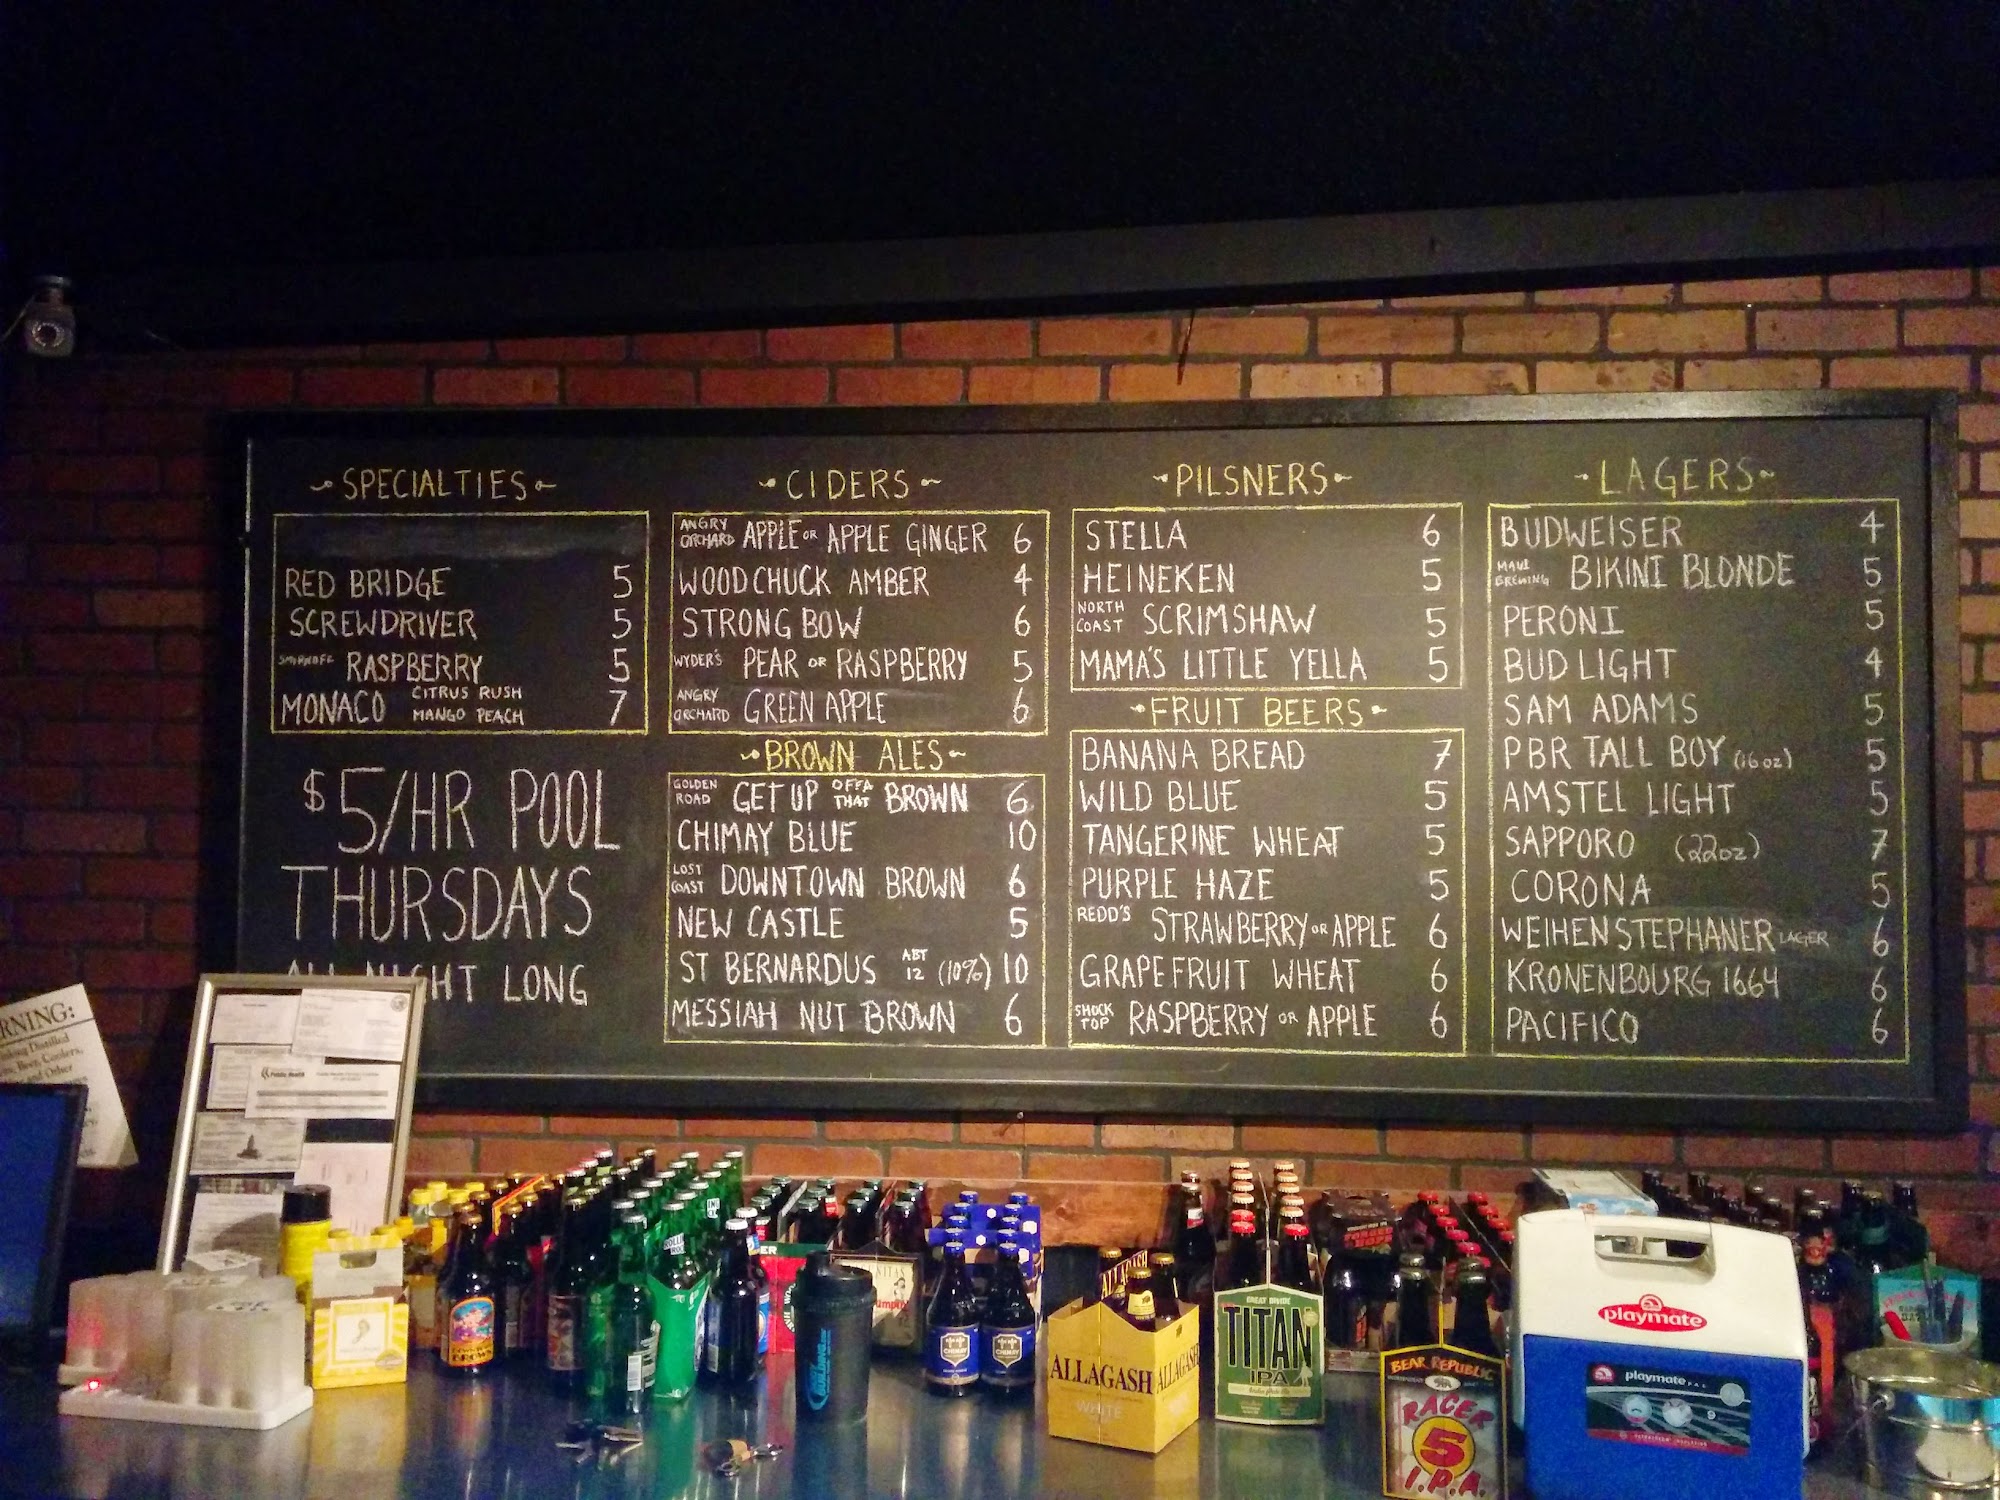 SPECIALTIES
RED BRIDGE 5
SCREWDRIVER 5
SMIRNOFF RASPBERRY 5
MONACO CITRUS RUSH MANGO PEACH 7
$5/HR POOL
THURSDAYS
NIGHT LONG
CIDERS
ANGRY ORCHARD APPLE OR APPLE GINGER 6
WOODCHUCK AMBER 4
STRONG BOW 6
WYDER'S PEAR OR RASPBERRY 5
ANGRY ORCHARD GREEN APPLE 6
BROWN ALES
GOLDEN ROAD GET UP OFFA THAT BROWN 6
CHIMAY BLUE 10
LOST COAST DOWNTOWN BROWN 6
NEW CASTLE 5
ST BERNARDUS ABT 12 (10%) 10
MESSIAH NUT BROWN 6
PILSNERS
STELLA 6
HEINEKEN 5
NORTH COAST SCRIMSHAW 5
MAMA'S LITTLE YELLA 5
FRUIT BEERS
BANANA BREAD 7
WILD BLUE 5
TANGERINE WHEAT 5
PURPLE HAZE 5
REDD'S STRAWBERRY OR APPLE 6
GRAPEFRUIT WHEAT 6
SHOCK TOP RASPBERRY OR APPLE 6
LAGERS
BUDWEISER 4
MAUI BREWING BIKINI BLONDE 5
PERONI 5
BUD LIGHT 4
SAM ADAMS 5
PBR TALL BOY (16oz) 5
AMSTEL LIGHT 5
SAPPORO (22oz) 7
CORONA 5
WEIHENSTEPHANER LAGER 6
KRONENBOURG 1664 6
PACIFICO 6
RNING:
Distilled
Beer, Coolers,
and Other
Public Health
CHIMAY
CHIMAY
ALLAGASH
WHITE
ALLAGASH
GREAT DIVIDE
TITAN
IPA
BEAR REPUBLIC
RACER
5
I.P.A.
playmate
playmate